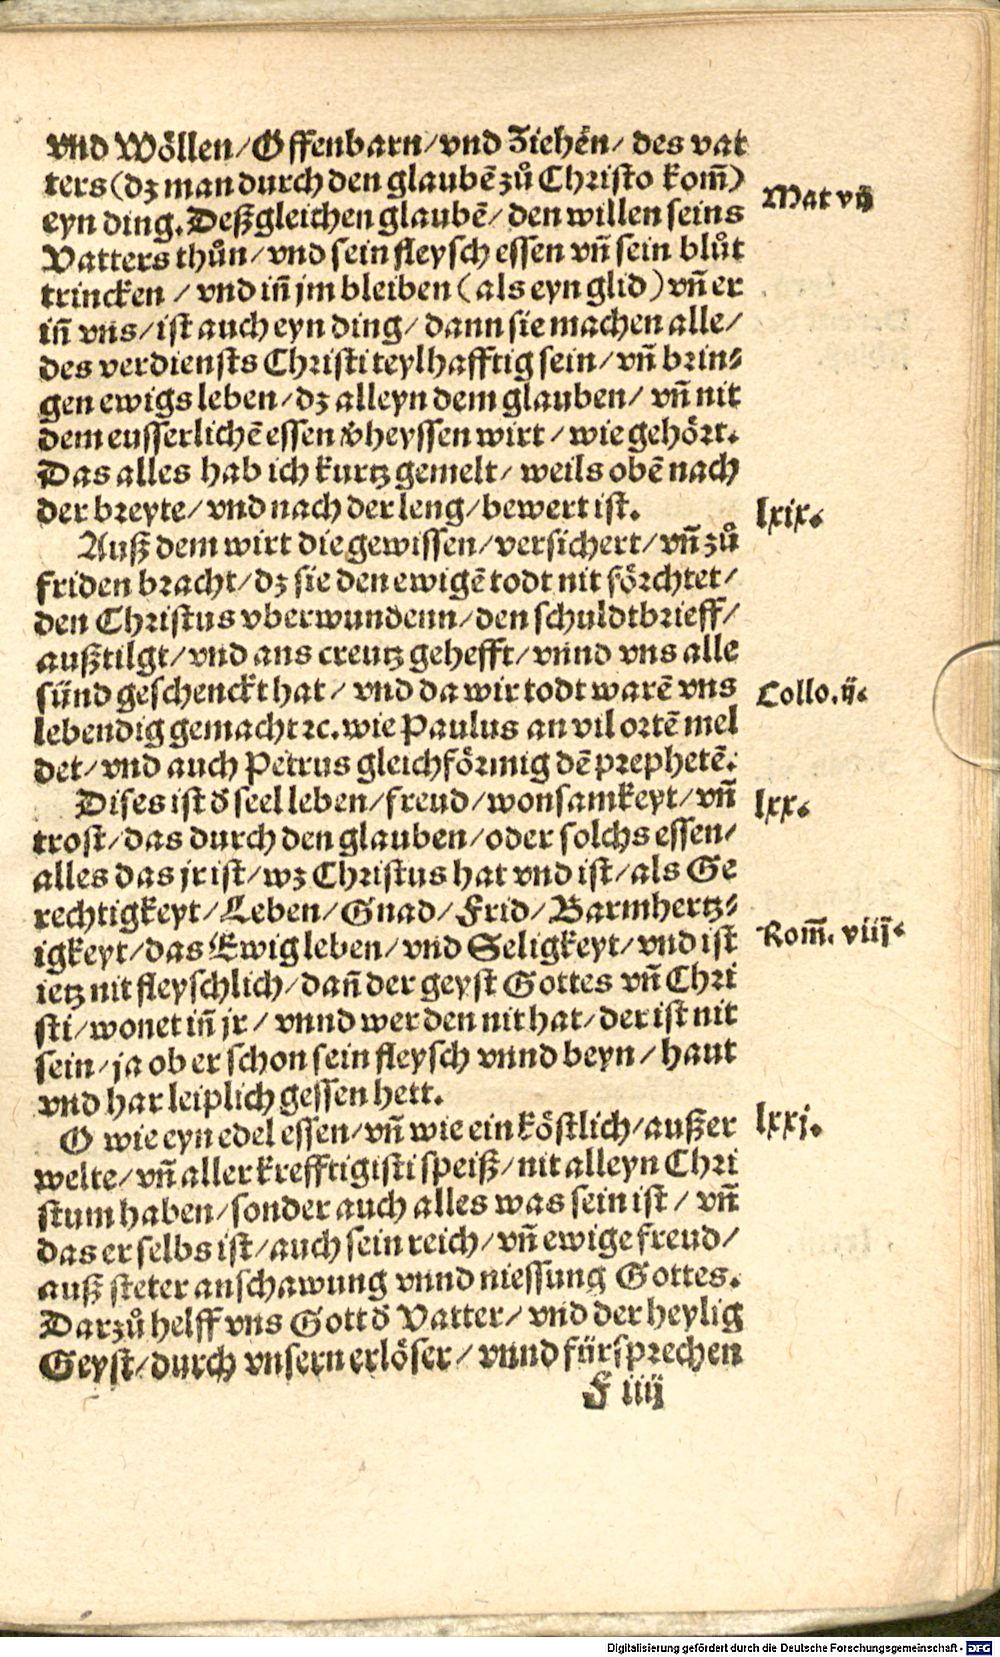 vnd Wöllen/Offenbarn/vnd Ziehẽn/ des vat
ters(dz man durch den glaubẽ zů Christo kom̃)
Mat vij
eyn ding. Deßgleichen glaubẽ/ den willen seins
Vatters thůn/vnd sein fleysch essen vñ sein blůt
trincken / vnd iñ jm bleiben (als eyn glid) vñ er
iñ vns/ist auch eyn ding/ dann sie machen alle/
des verdiensts Christi teylhafftig sein/ vñ brin⸗
gen ewigs leben/dz alleyn dem glauben/ vñ nit
dem eusserlichẽ essen v̊heyssen wirt / wie gehört.
Das alles hab ich kurtz gemelt/ weils obẽ nach
der breyte/ vnd nach der leng/bewert ist.
lxix.
Auß dem wirt die gewissen/versichert/vñ zů
friden bracht/dz sie den ewigẽ todt nit förchtet/
den Christus vberwundenn/den schuldtbrieff/
außtilgt/vnd ans creutz gehefft/vnnd vns alle
sünd geschenckt hat/ vnd da wir todt warẽ vns
Collo.ij.
lebendig gemacht ꝛc. wie Paulus an vil ortẽ mel
det/vnd auch Petrus gleichförmig dẽ prephetẽ.
Dises ist d̊ seel leben/freud/wonsamkeyt/vñ
lxx.
trost/das durch den glauben/oder solchs essen/
alles das jr ist/wz Christus hat vnd ist/als Ge
rechtigkeyt/Leben/Gnad/Frid/Barmhertz⸗
igkeyt/das Ewig leben/vnd Seligkeyt/vnd ist
Rom̃. viij.
ietz nit fleyschlich/dañ der geyst Gottes vñ Chri
sti/wonet iñ jr/ vnnd wer den nit hat/der ist nit
sein/ja ob er schon sein fleysch vnnd beyn/haut
vnd har leiplich gessen hett.
O wie eyn edel essen/vñ wie ein köstlich/außer
lxxj.
welte/vñ aller krefftigisti speiß/nit alleyn Chri
stum haben/sonder auch alles was sein ist / vñ
das er selbs ist/auch sein reich/vñ ewige freud/
auß steter anschawung vnnd niessung Gottes.
Darzů helff vns Gott d̊ Vatter/ vnd der heylig
Geyst/durch vnsern erlöser/ vnnd fürsprechen
F iiij
Digitalisierung gefördert durch die Deutsche Forschungsgemeinschaft - DFG